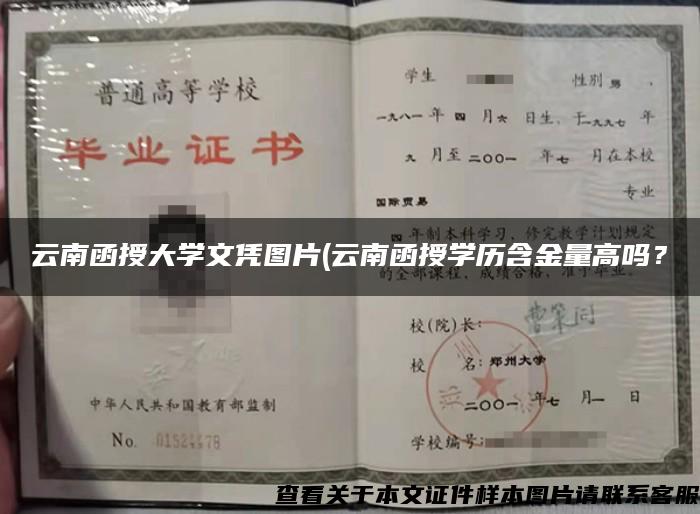 普通高等学校
毕业证书
中华人民共和国教育部监制
No. 01524478
学生 性别 男 ,
一九八一 年 四 月 六 日生, 于 一九九七 年
九 月至 二〇〇一 年 七 月在本校
国际贸易 专业
四 年制本科学习, 修完教学计划规定
的全部课程, 成绩合格, 准予毕业。
云南函授大学文凭图片(云南函授学历含金量高吗?
校(院)长:
校 名: 郑州大学
二〇〇一 年 七 月 一 日
学校编号:
查看关于本文证件样本图片请联系客服